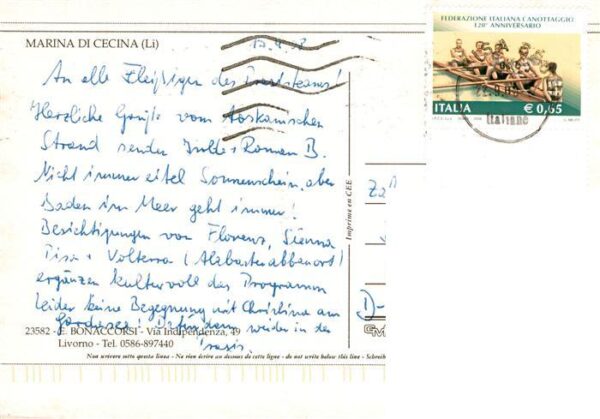 MARINA DI CECINA (Li)
FEDERAZIONE ITALIANA CANOTTAGGIO
120° ANNIVERSARIO
ITALIA € 0,65
Italiane
An alle Fleißigen des
Herzliche Grüße vom Toskanischen
Strand senden + Roman B.
Nicht immer eitel Sonnenschein, aber
Baden im Meer geht immer!
Besichtigungen von Florenz, Sienna
Pisa + Volterra (Alabasterabbauort)
ergänzen kulturvoll das Programm
leider keine Begegnung mit Christina am
Gardasee! weiter in der
Imprimé en CEE
D-
23582 - E. BONACCORSI - Via Indipendenza, 49
Livorno - Tel. 0586-897440
Non scrivere sotto questa linea - Ne rien écrire au dessous de cette ligne - do not write below this line - Schreib